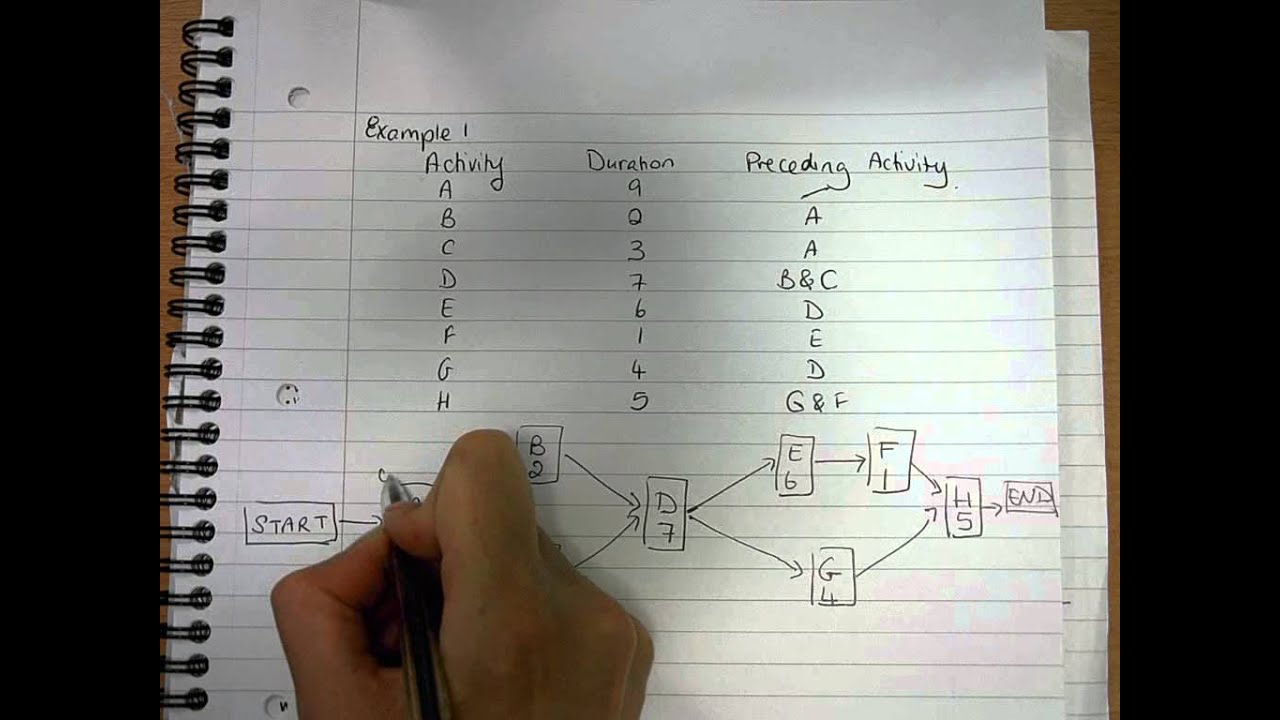 Example 1
Activity Duration Preceding Activity.
A 9 —
B 2 A
C 3 A
D 7 B & C
E 6 D
F 1 E
G 4 D
H 5 G & F
B
2
E
6
F
1
START
D
7
H
5
END
G
4